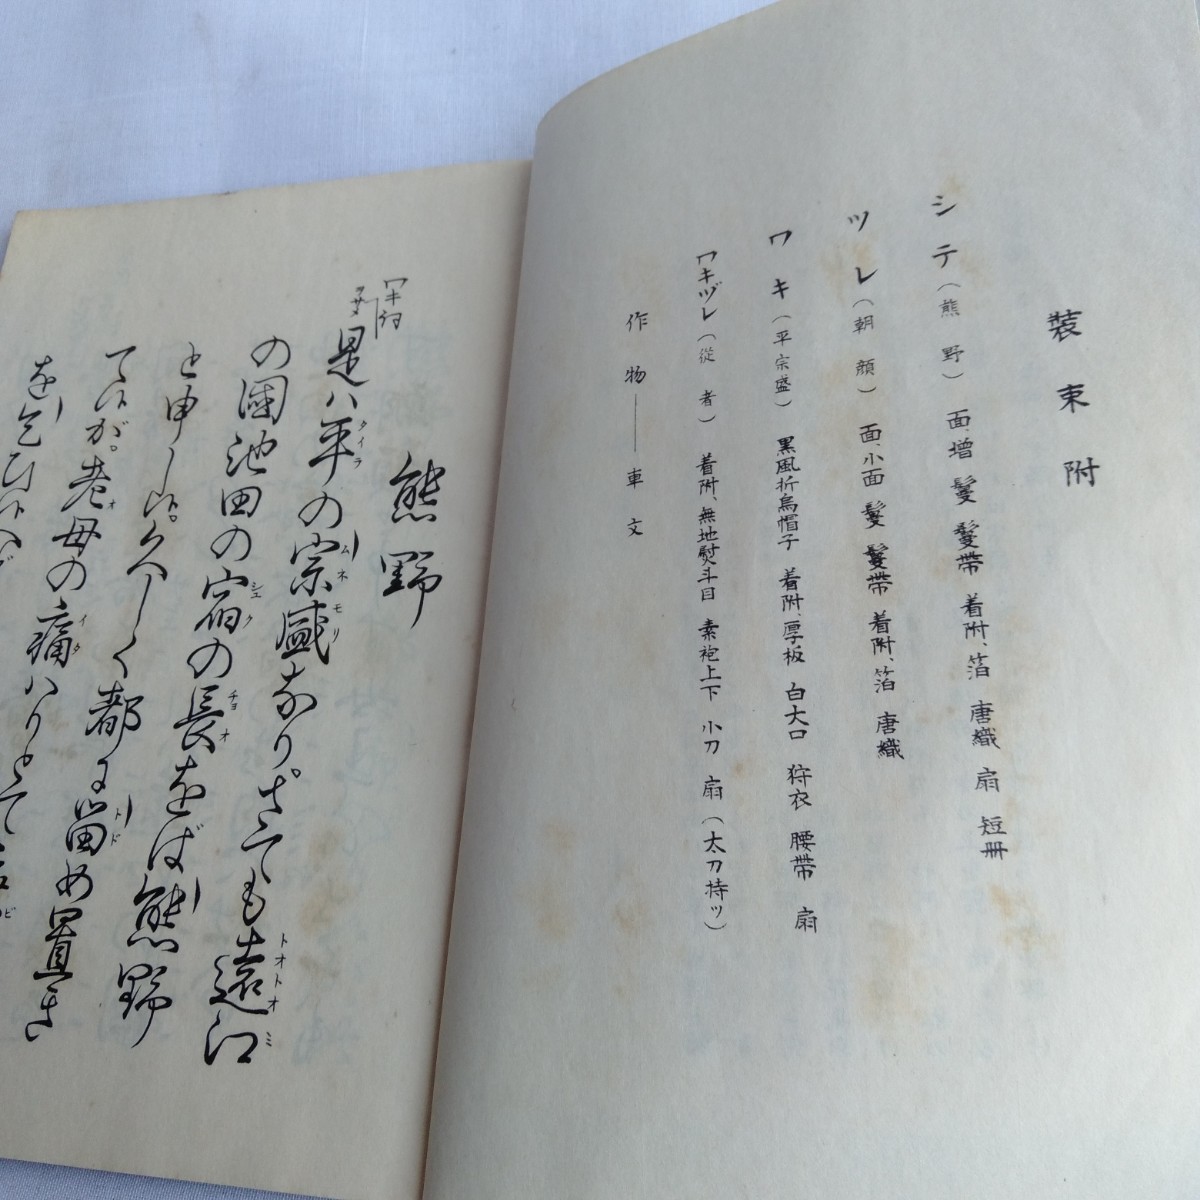 装束附
シテ（熊野） 面、増 鬘 鬘帶 着附、箔 唐織 扇 短冊
ツレ（朝顔） 面、小面 鬘 鬘帶 着附、箔 唐織
ワキ（平宗盛） 黒風折烏帽子 着附、厚板 白大口 狩衣 腰帶 扇
ワキヅレ（從者） 着附、無地熨斗目 素袍上下 小刀 扇（太刀持ツ）
作物――車 文
熊野
ワキ詞
是ハ平の宗盛なり。さても遠江
の國池田の宿の長をば熊野
と申し候。久しく都に留め置き
て候が。老母の痛ハりとて